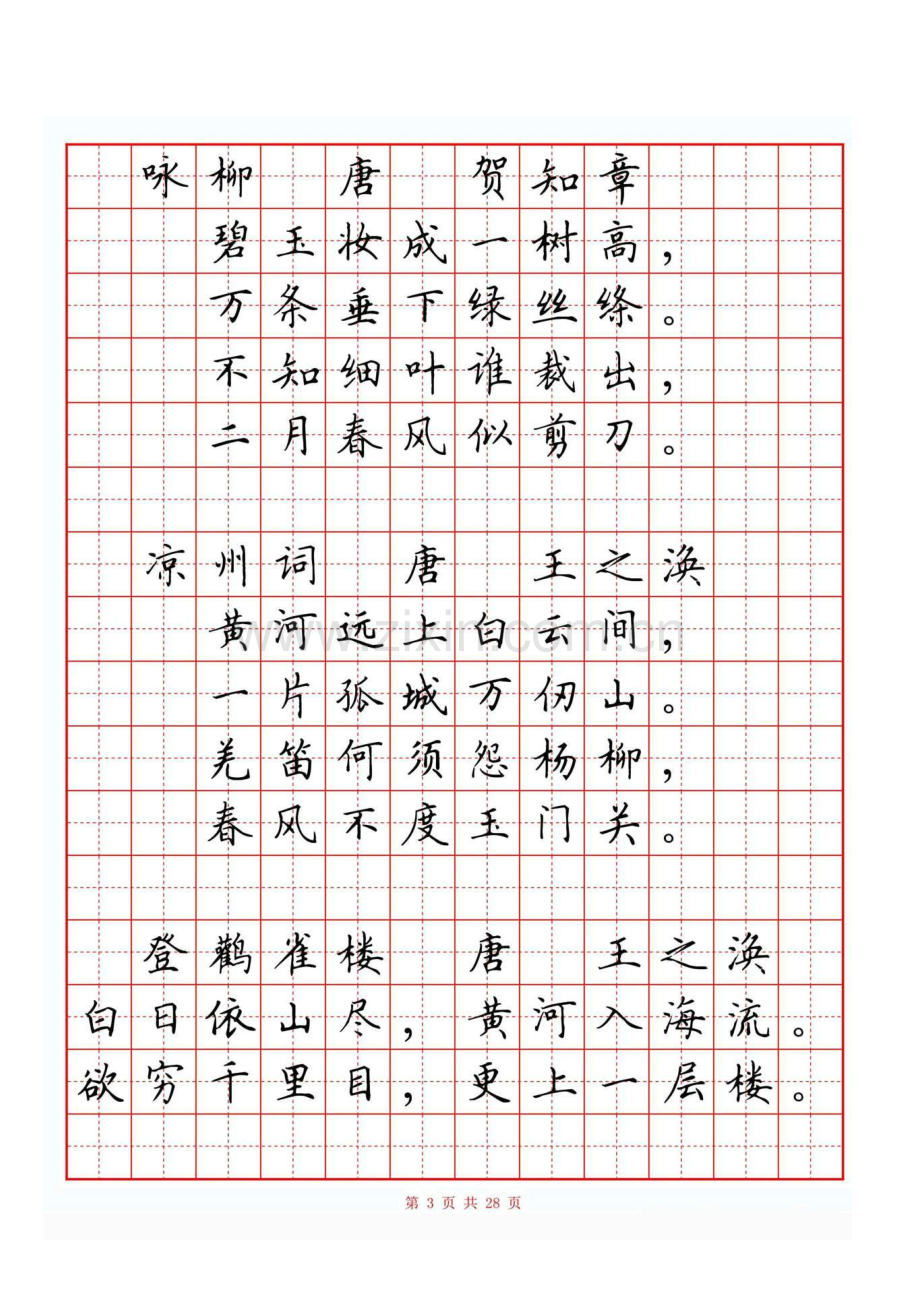 咏柳 唐 贺知章
碧玉妆成一树高，
万条垂下绿丝绦。
不知细叶谁裁出，
二月春风似剪刀。
凉州词 唐 王之涣
黄河远上白云间，
www.zixin.com.cn
一片孤城万仞山。
羌笛何须怨杨柳，
春风不度玉门关。
登鹳雀楼 唐 王之涣
白日依山尽，黄河入海流。
欲穷千里目，更上一层楼。
第 3 页 共 28 页